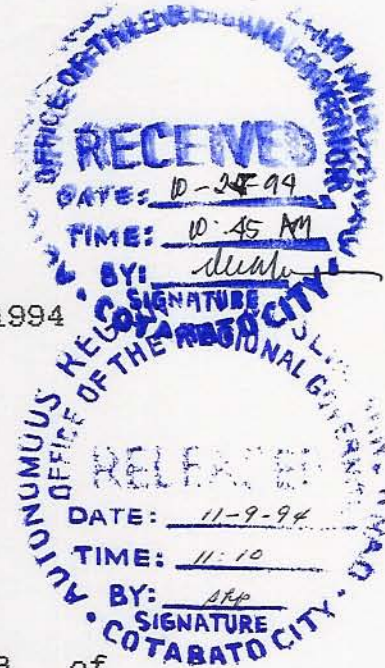 OFFICE OF THE REGIONAL GOVERNOR
RECEIVED
DATE: 10-24-94
TIME: 10:45 AM
BY:
SIGNATURE
COTABATO CITY
1994
AUTONOMOUS REG
OFFICE OF THE REGIONAL GOVERNOR
RELEASED
DATE: 11-9-94
TIME: 11:10
BY:
SIGNATURE
COTABATO CITY
of